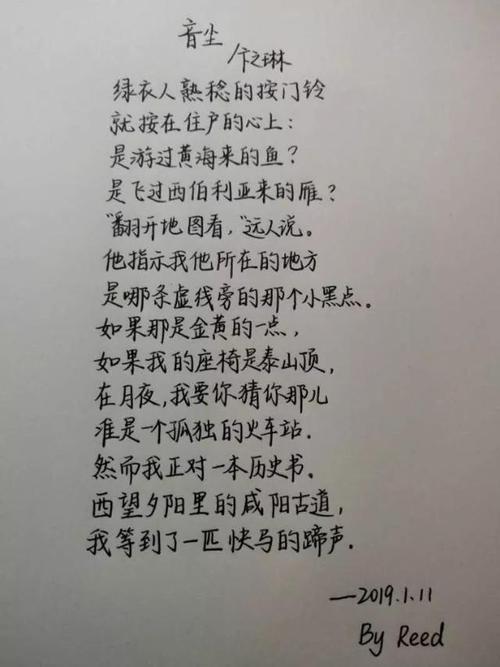 音尘
卞之琳
绿衣人熟稔的按门铃
就按在住户的心上：
是游过黄海来的鱼？
是飞过西伯利亚来的雁？
“翻开地图看，”远人说。
他指示我他所在的地方
是哪条虚线旁的那个小黑点。
如果那是金黄的一点，
如果我的座椅是泰山顶，
在月夜，我要你猜你那儿
准是一个孤独的火车站．
然而我正对一本历史书．
西望夕阳里的咸阳古道，
我等到了一匹快马的蹄声．
—2019.1.11
By Reed